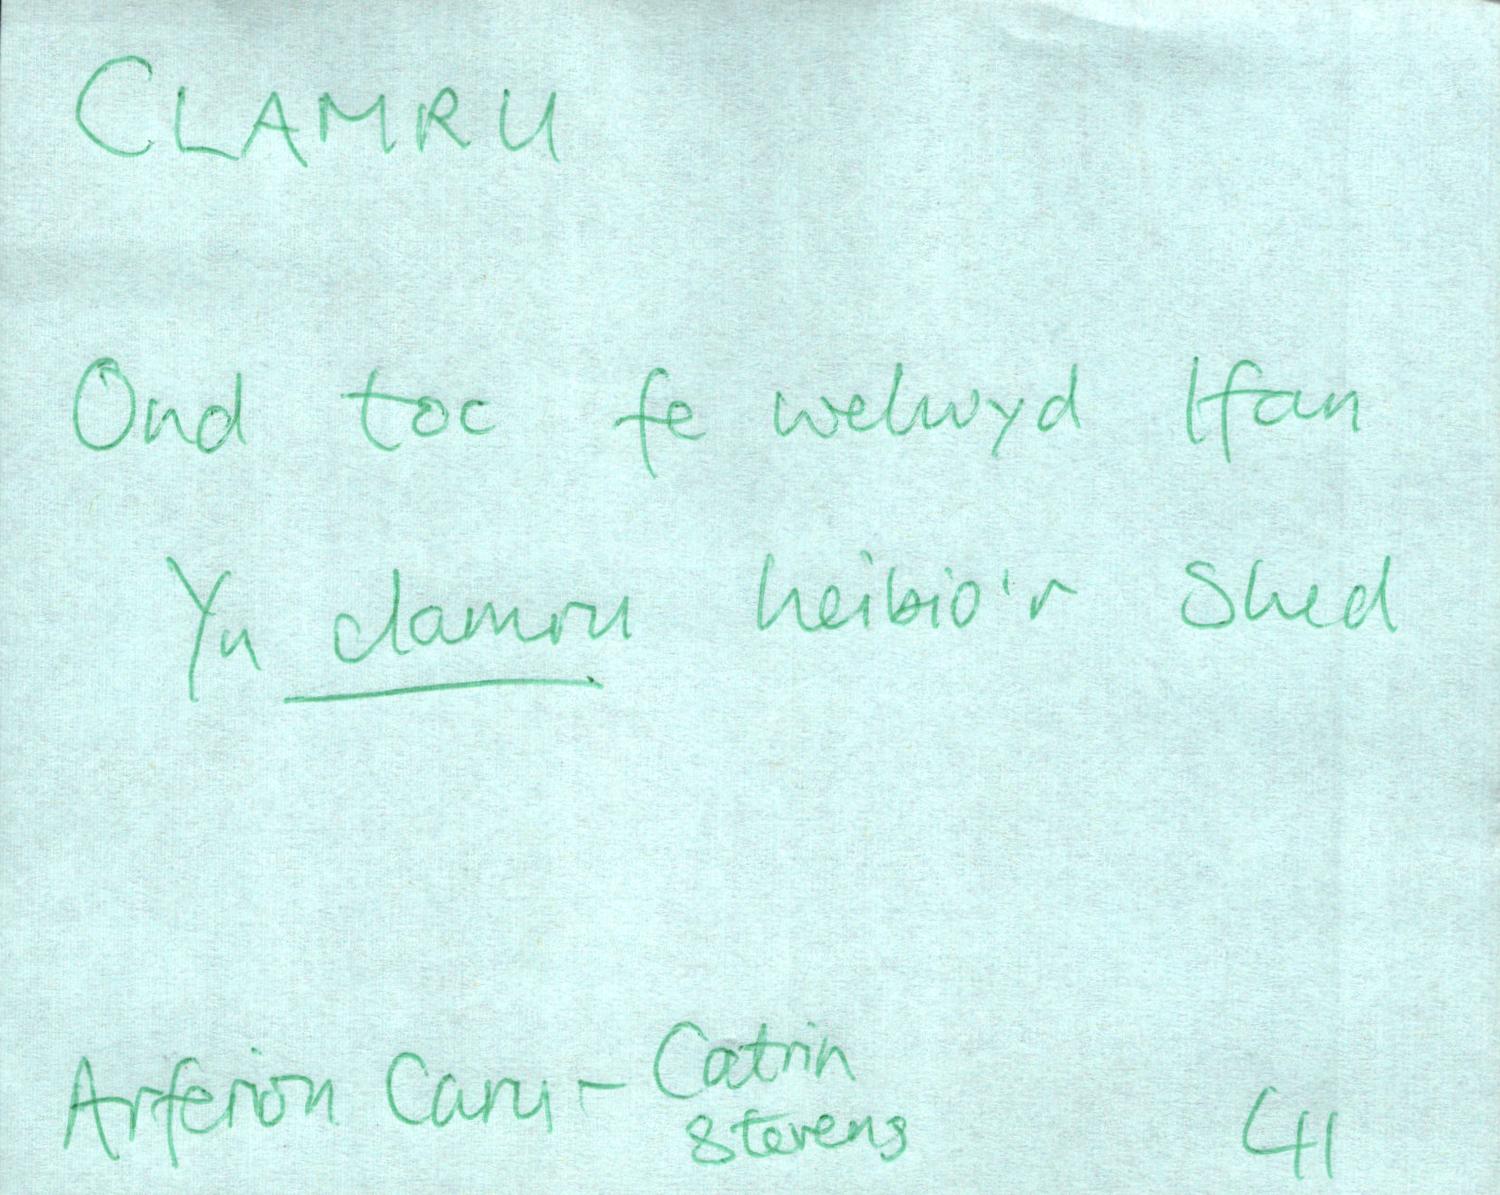 CLAMRU
Ond toc fe welwyd Ifan
Yn clamru heibio'r Shed
Arferion Caru - Catrin
Stevens
41